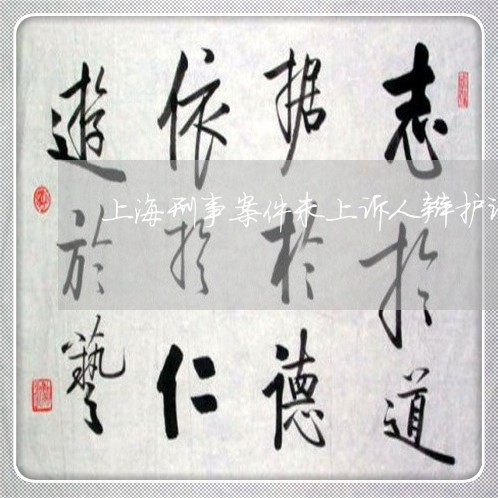 志於道
据於德
依於仁
遊於藝
上海刑事案件未上诉人辩护